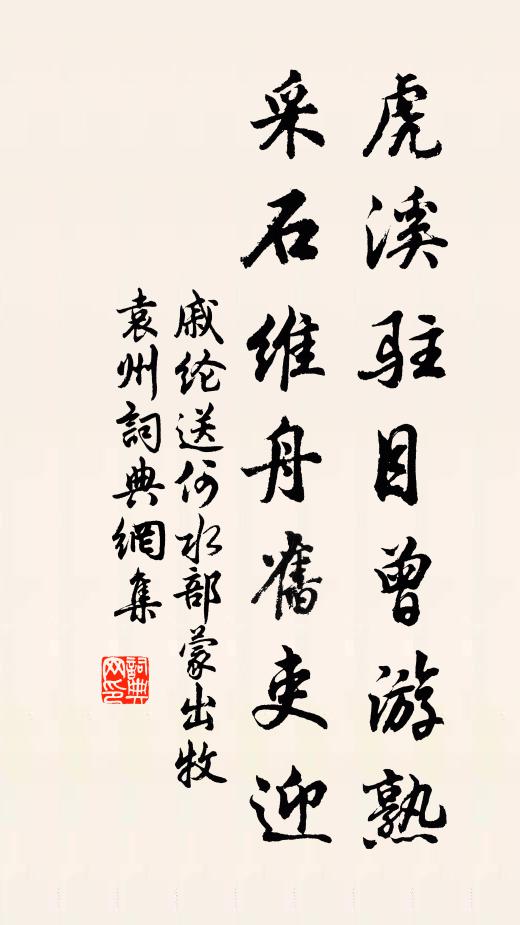 虎溪駐目曾游熟
采石維舟舊吏迎
戚纶送何水部蒙出牧
袁州詞典網集
詞典网印